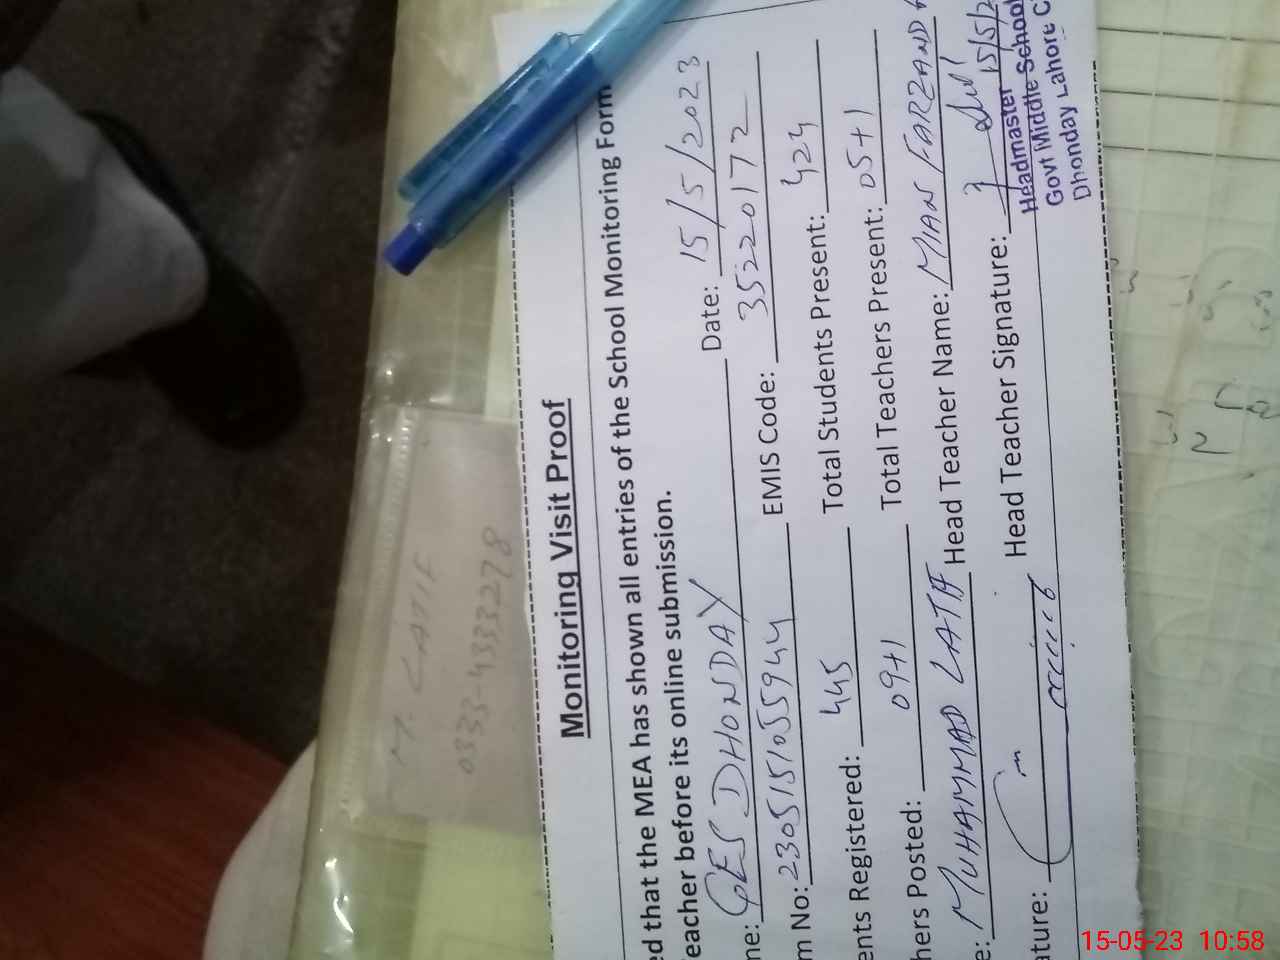 Monitoring Visit Proof
ed that the MEA has shown all entries of the School Monitoring Form
eacher before its online submission.
ne: GES DHONDAY Date: 15/5/2023
m No: 2305151055944 EMIS Code: 35220172
ents Registered: 445 Total Students Present: 424
hers Posted: 09+1 Total Teachers Present: 05+1
e: MUHAMMAD LATIF Head Teacher Name: MIAN FARZAND
ature: Head Teacher Signature: 15/5/2
Headmaster
Govt Middle School
Dhonday Lahore C
M. LATIF
0333-4333278
15-05-23 10:58